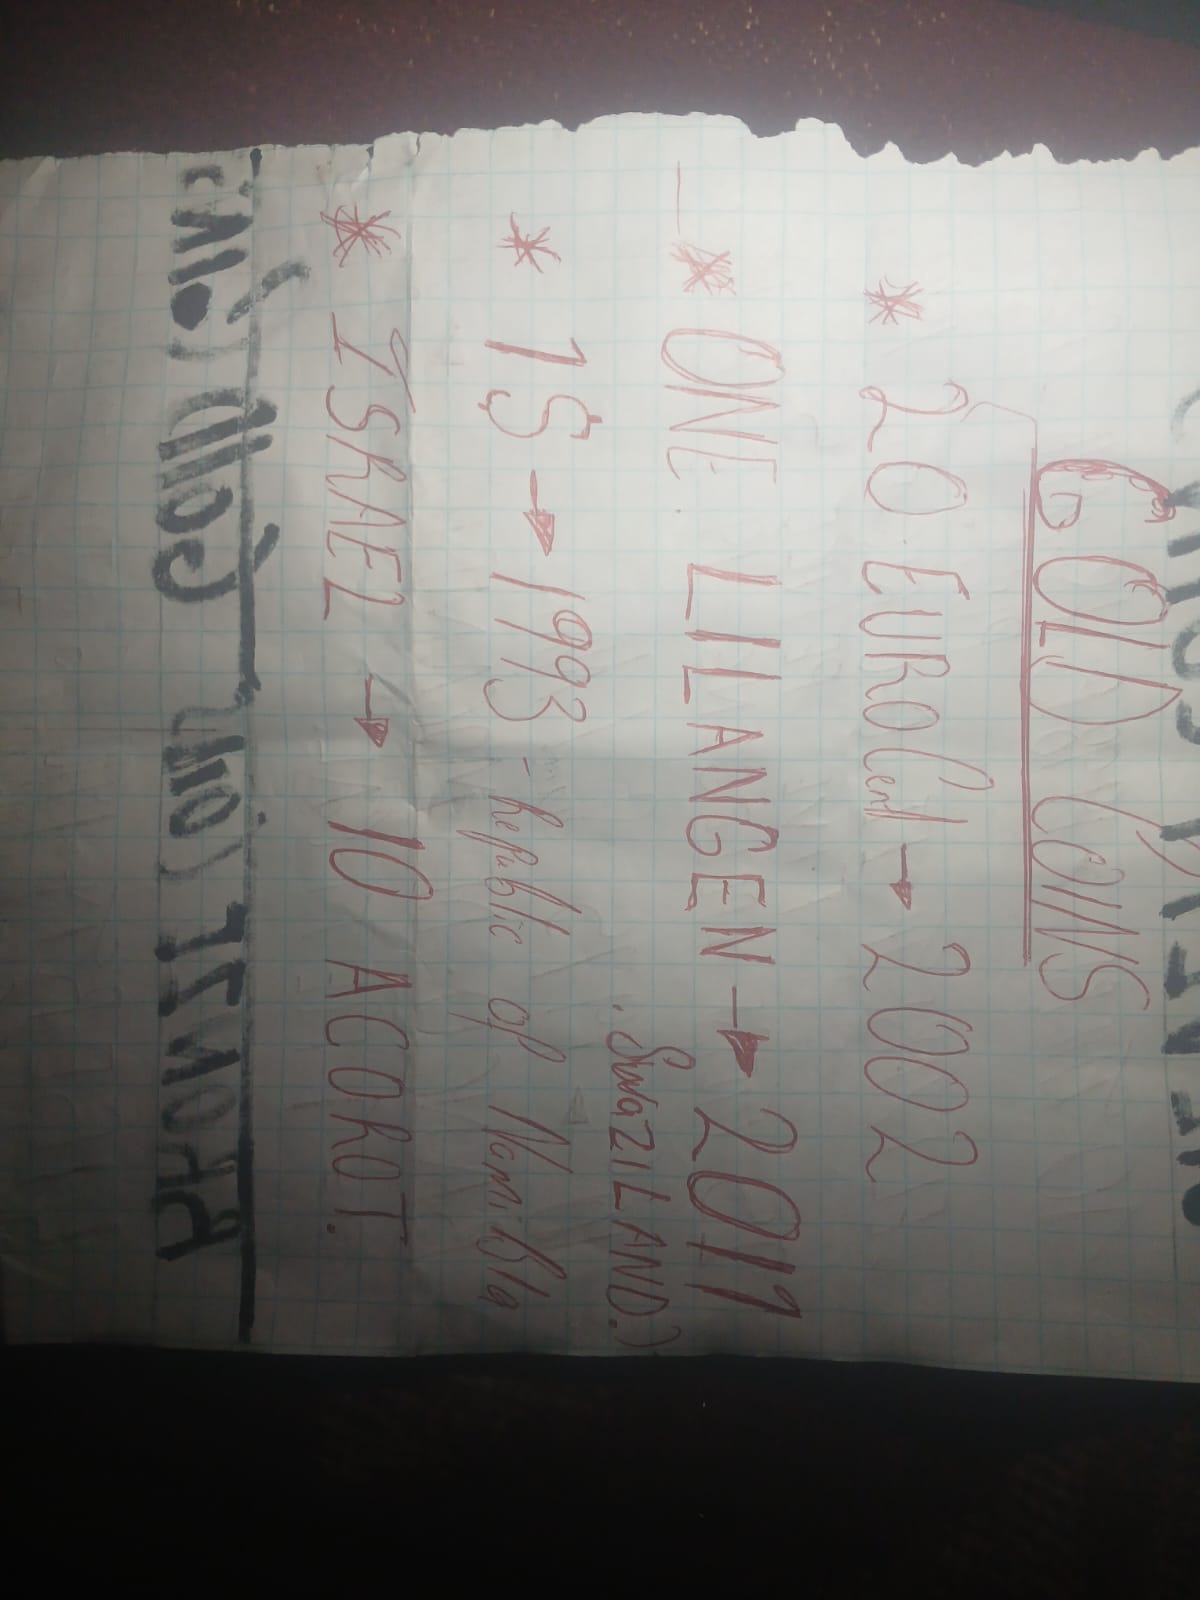 GOLD COINS
* 20 EURO Cent → 2002
* ONE LILANGEN → 2011
. SwaZILAND.)
* 1$ → 1993 - Republic of NamiBIa
* ISRAEL → 10 AGOROT.